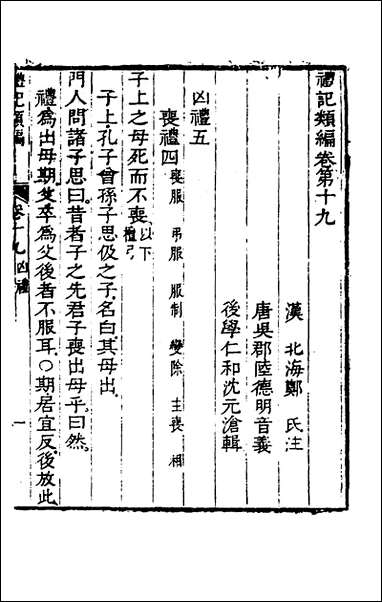 禮記類編卷第十九
漢北海鄭氏注
唐吳郡陸德明音義
後學仁和沈元滄輯
凶禮五
喪禮四 喪服 弔服 服制 變除 主喪 相
子上之母死而不喪 以下檀弓
子上孔子曾孫子思伋之子名白其母出
門人問諸子思曰昔者子之先君子喪出母乎曰然
禮為出母期父卒為父後者不服耳○期居宜反後放此
禮記類編 卷十九 凶禮 一